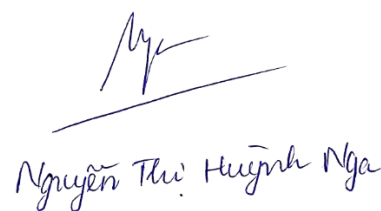 Nga
Nguyễn Thị Huỳnh Nga